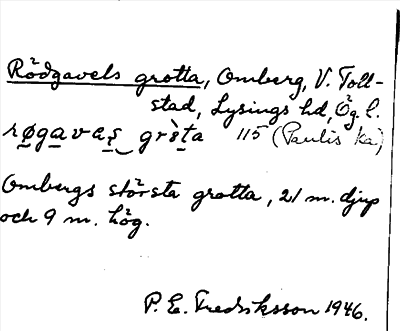 Rödgavels grotta, Omberg, V. Toll-
stad, Lysings hd, Ög. l.
røgavas gròta 115 (Paulis ka)
Ombergs största grotta, 21 m. djup
och 9 m. hög.
P. E. Fredriksson 1946.